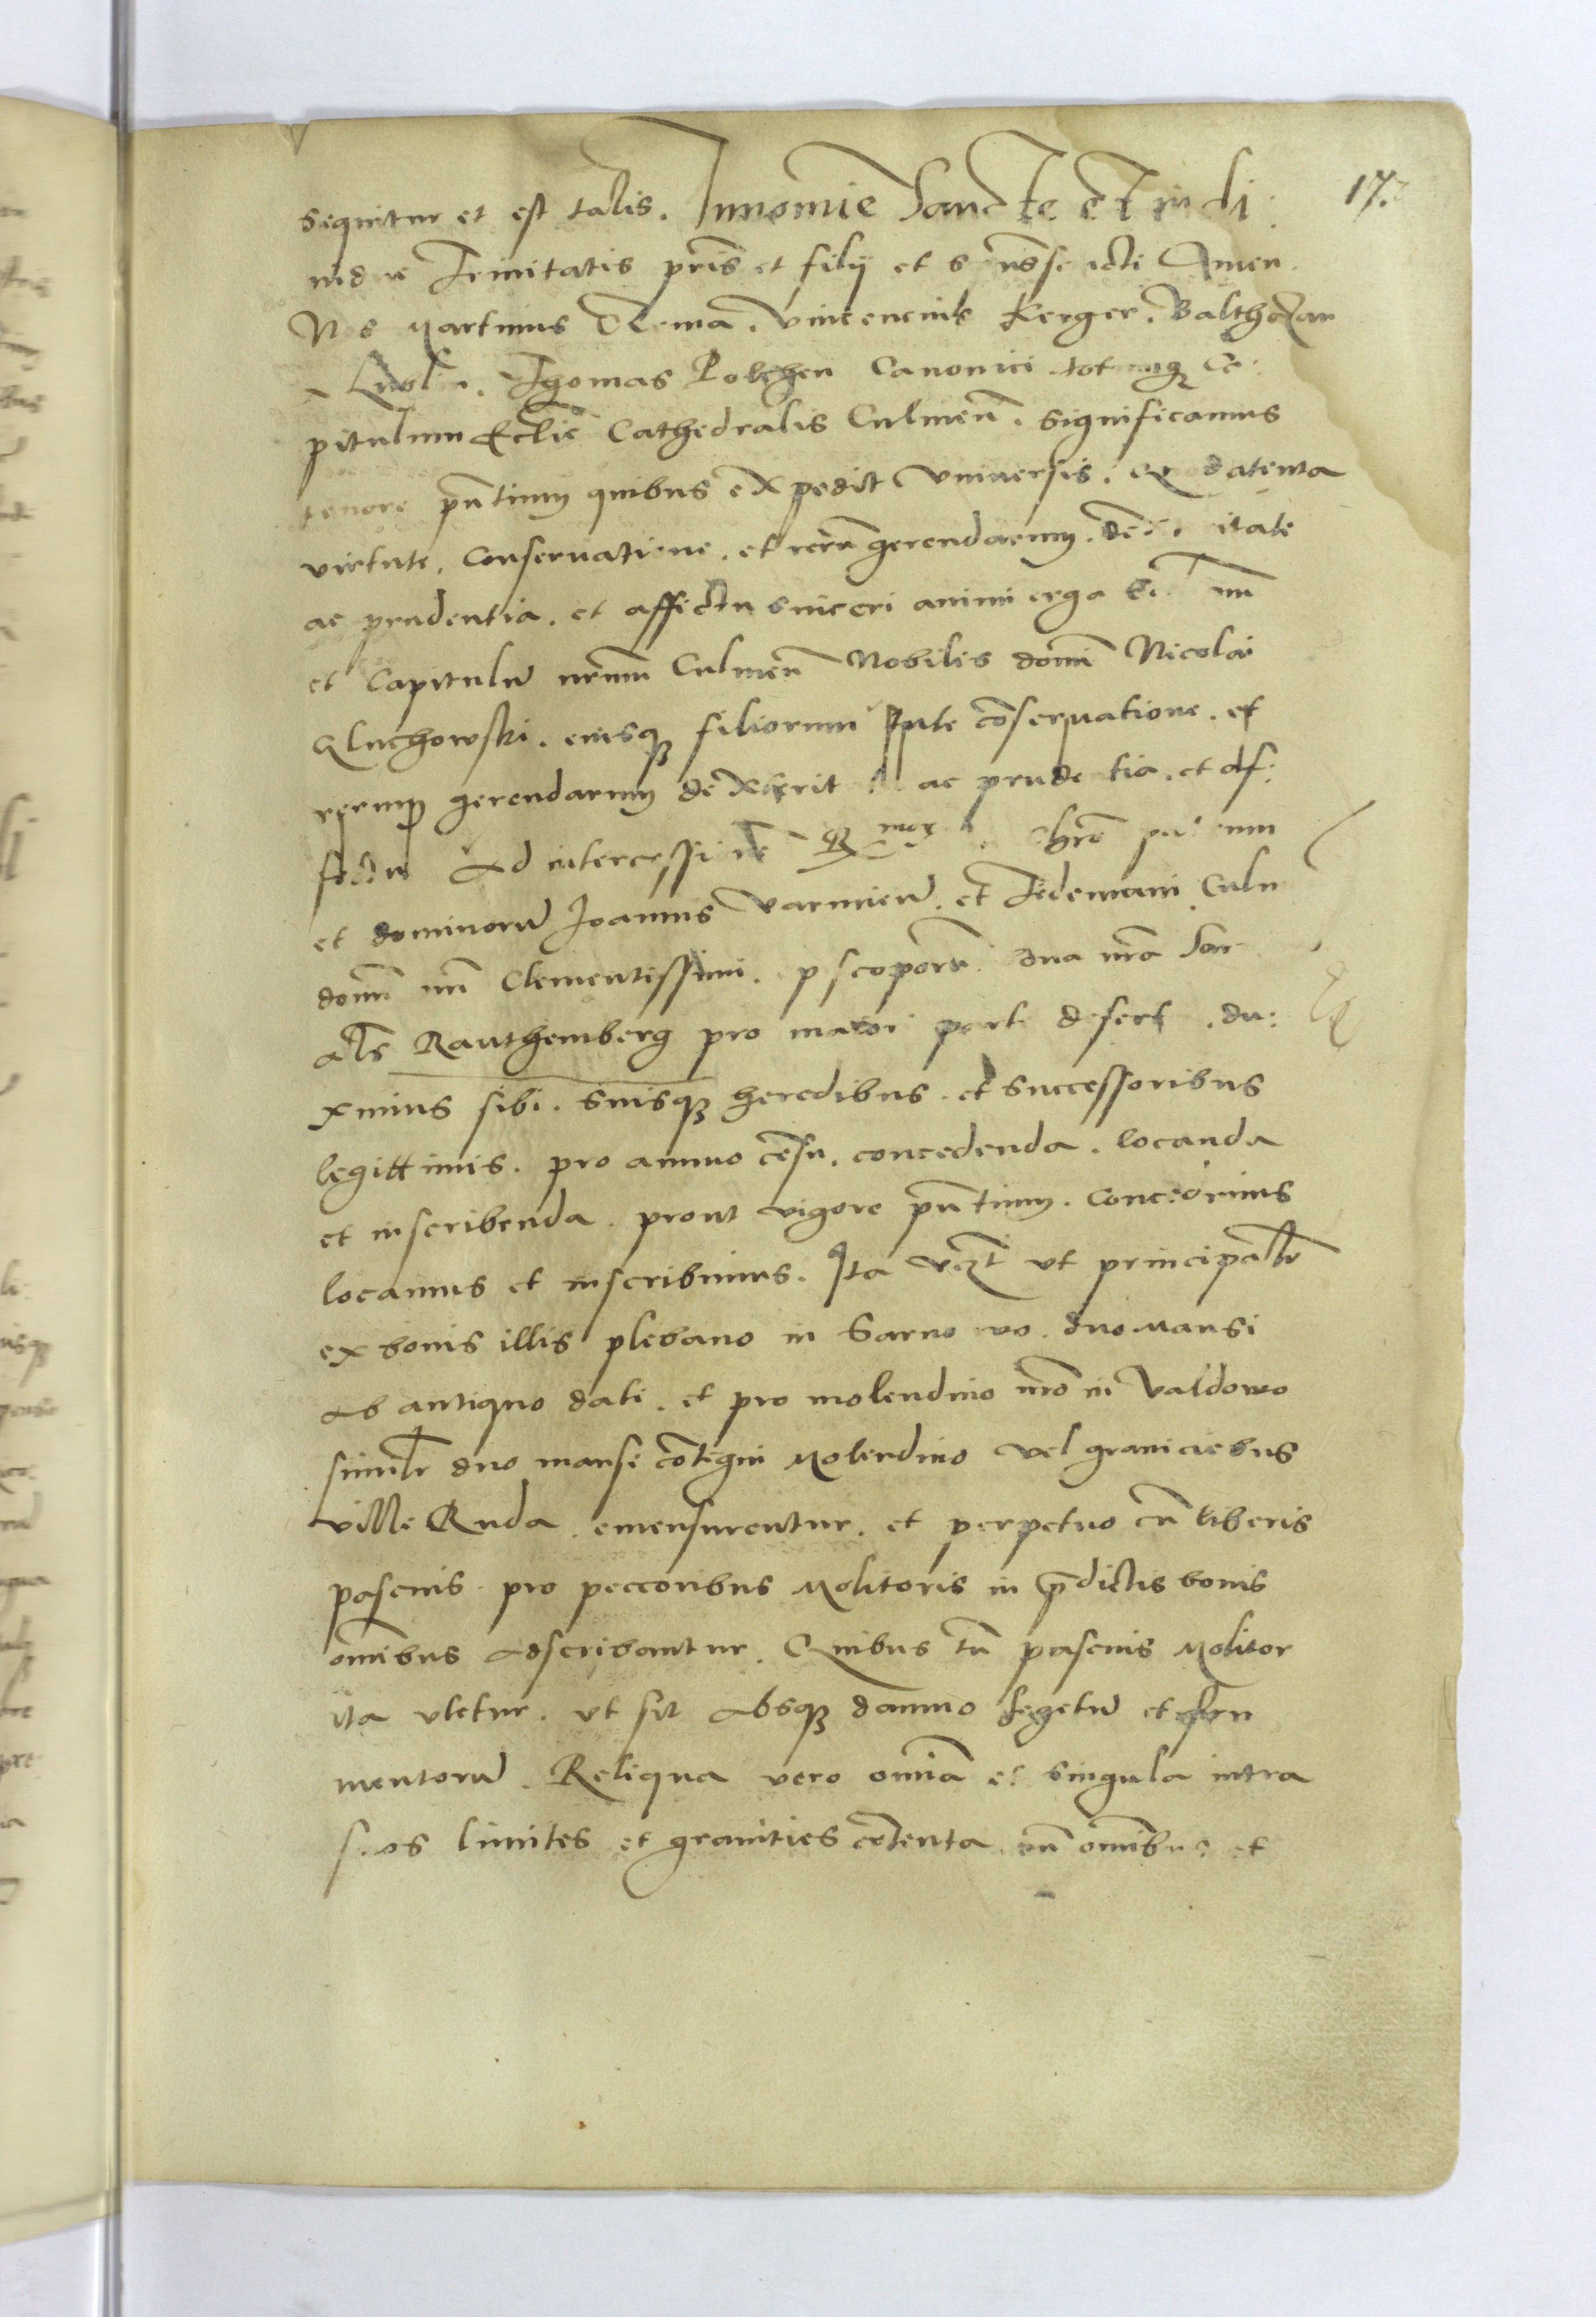 17.
sequitur et est talis. In nomie Sancte et indi
vidue Trinitatis pris et filij et Amen.
Nos Martinus Vincencius Kerger. Balthazar
a Lubl Thomas Polchen Canonici totumq Ca:
pitulum Ecclie Cathedralis Culmen. significamus
tenore pntium quibus expedit Universis.
virtute. conseruatione. et reru gerendarum. itate
ac prudentia. et affectu sinceri animi erga
et Capitulu nrmm Culmen Nobilis domi Nicolai
Gluchowski. eiusq filiorum conseruatione. et
rerumq gerendarum dexterit ac prudentia. et af:
fectu ad intercessione
et dominoru Joannis Varmien. et Tidemani Culm
domi nri Clementissimi. pscoporu. nra Sar
als Rauthemberg pro maiori parte desert. du:
ximus sibi. suisq heredibus. et successoribus
legittimis. pro annuo cesu. concedenda. locanda
et inscribenda. prout vigore pntium. concedimus
locamus et inscribimus. Ita vczt ut principalr
ex bonis illis plebano in Sarnowo. duo mansi
ab antiquo dati. et pro molendino nro in Valdowo
similr duo mansi cotigui Molendino vel graniciebus
ville Ruda. emensurentur. et perpetuo cu liberis
pascuis pro peccoribus Molitoris in pdictis bonis
omibus adscribantur. Quibus tn pascuis Molitor
ita utetur. ut sit absq damno segetu et fru
mentoru. Reliqua vero omia et singula intra
suos limites et granities cotenta. cu omibus et